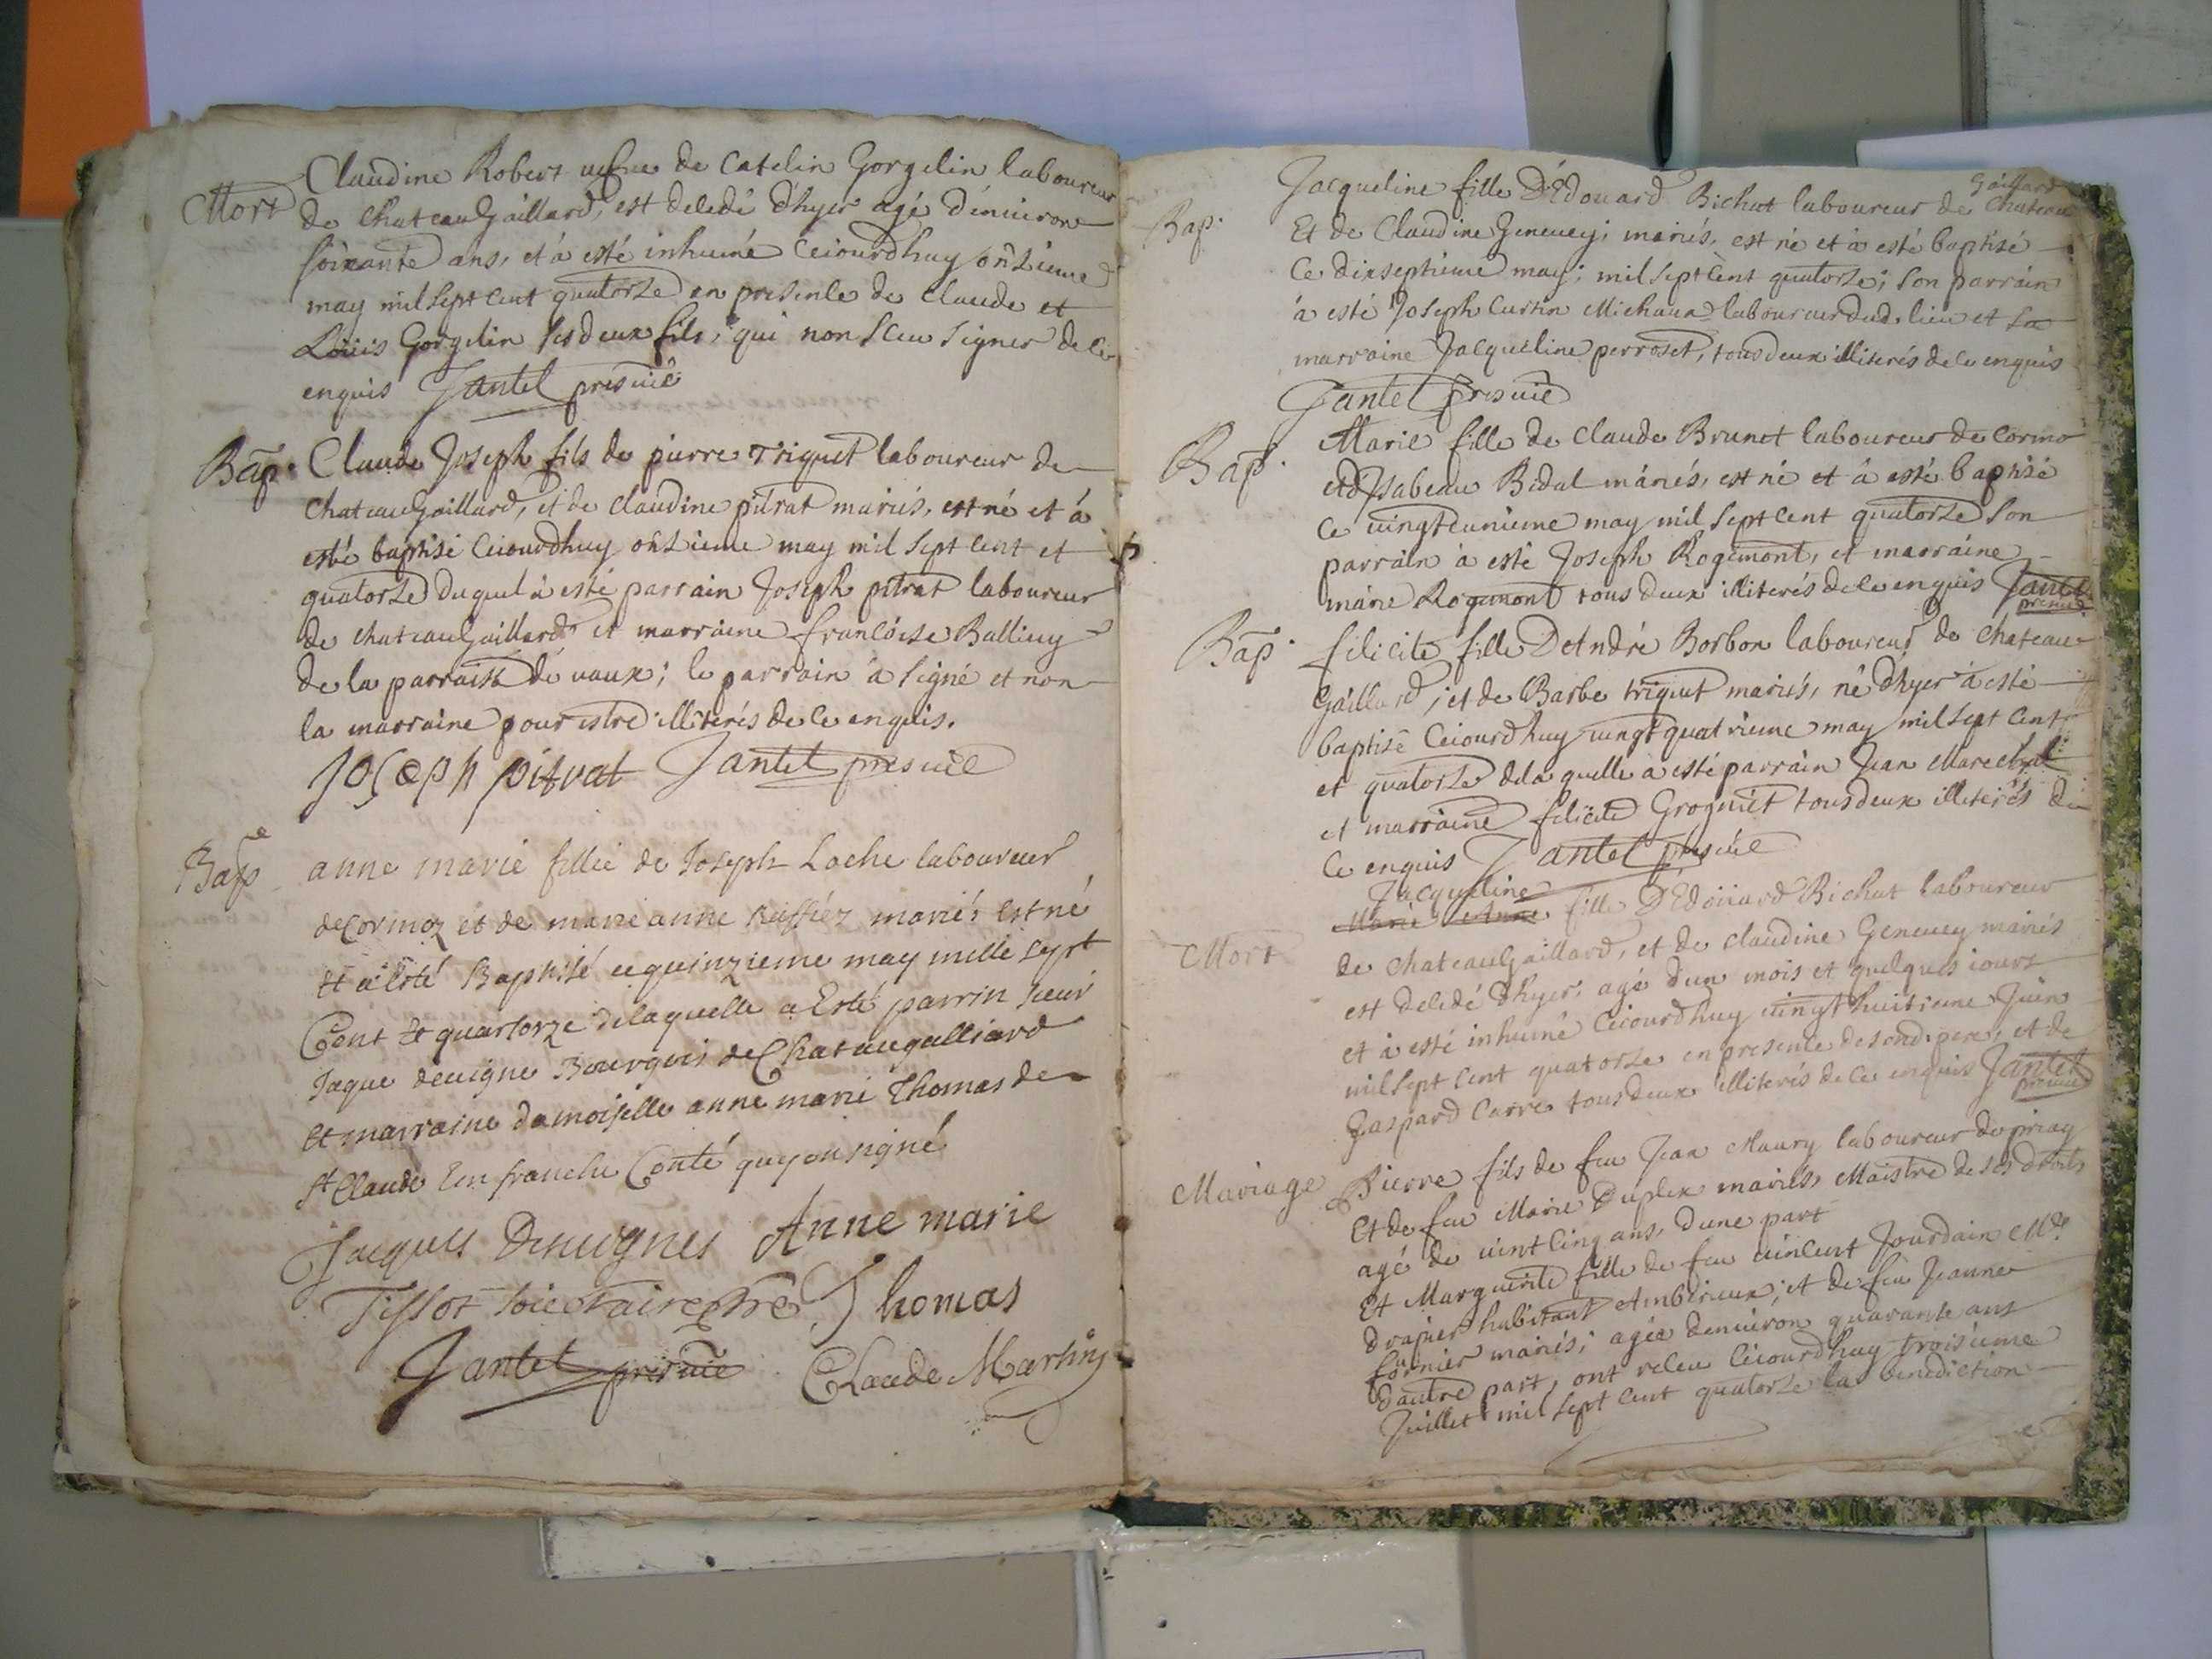 Mort
Claudine Robert vefue de Catelin Gorgelin laboureur
de chateauGaillard, est decedé d'hyer agé d'enuiron
soixante ans, et à esté inhumé ceiourdhuy onzieme
may mil sept cent quatorze en presence de Claude et
Loüis Gorgelin ses deux fils, qui non sceu signer de ce
enquis Jantet presuic
Bap. Claude Joseph fils de pierre Triquet laboureur de
chateauGaillard, et de claudine pitrat mariés, est né et à
esté baptisé ceiourdhuy onzieme may mil sept cent et
quatorze duquel à esté parrain Joseph pitrat laboureur
de chateauGaillard et marraine francóise Ballivy
de la parroisse de vaux; le parrain à signé et non
la marraine pour estre illiterés de ce enquis.
Joseph pitrat Jantet presuic
Bap
anne marie fillie de Joseph Loche laboureur
de Cormoz et de marie anne mariés est né
et a Esté Baptisé ce quinzieme may mille sept
Cent et quartorze de laquelle a Esté parrin sieur
Jaque deuigne Bourgois de Chataugalliard
et marraine damoiselle anne marie Thomas de
St Claude En franche Conté quy on signé
Jacques Deuignes Anne marie
Tissot Thomas
Jantet presuic Claude Martin
Bap.
Jacqueline fille D'Édouard Bichat laboureur de chateau
Gaillard
Et de Claudine Geneuey; mariés, est né et à esté baptisé
ce dixseptieme may; mil sept cent quatorze; son parrain
à esté Joseph Curtin Michaud laboureur dud. lieu et sa
marraine Jacqueline perroset, tous deux illiterés de ce enquis
Jantet presuic
Bap.
Marie fille de claude Brunet laboureur de cormo
et d'Jsabeau Bidal mariés, est né et à esté baptisé
ce uingteunieme may mil sept cent quatorze son
parrain à esté Joseph Rogemont, et marraine
marie Rogemont tous deux illiterés de ce enquis Jantet
presuic
Bap. felicite fille D'André Borbon laboureur de chateau
Gaillard, et de Barbe triquet mariés, né d'hyer à esté
baptisé ceiourdhuy uingt quatrieme may mil sept cent
et quatorze de la quelle a esté parrain Jean Marechal
et marraine felicite Grogniet tous deux illiterés de
ce enquis Jantet presuic
Jacqueline
Marie Anne fille D'Edoüard Bichat laboureur
Mort
de chateauGaillard, et de claudine Geneuey mariés
est decedé d'hyer, agé d'un mois et quelques iours
et à esté inhumé ceiourdhuy uingt huitieme Juin
mil sept cent quatorze en presence de sond. pere, et de
Gaspard Carre tous deux illiterés de ce enquis Jantet
presuic
Mariage Pierre fils de feu Jean Maury laboureur de priay
Et de feu Marie Duplex mariés, Maistre de ses droits
agé de uint cinq ans, d'une part
Et Marguerite fille de feu uincent Jourdain Md
drapier habitant Ambérieux; et de feu Jeanne
fornier mariés; agée denuiron quarante ans
d'autre part, ont receu ceiourdhuy troisieme
Juillet mil sept cent quatorze la benediction